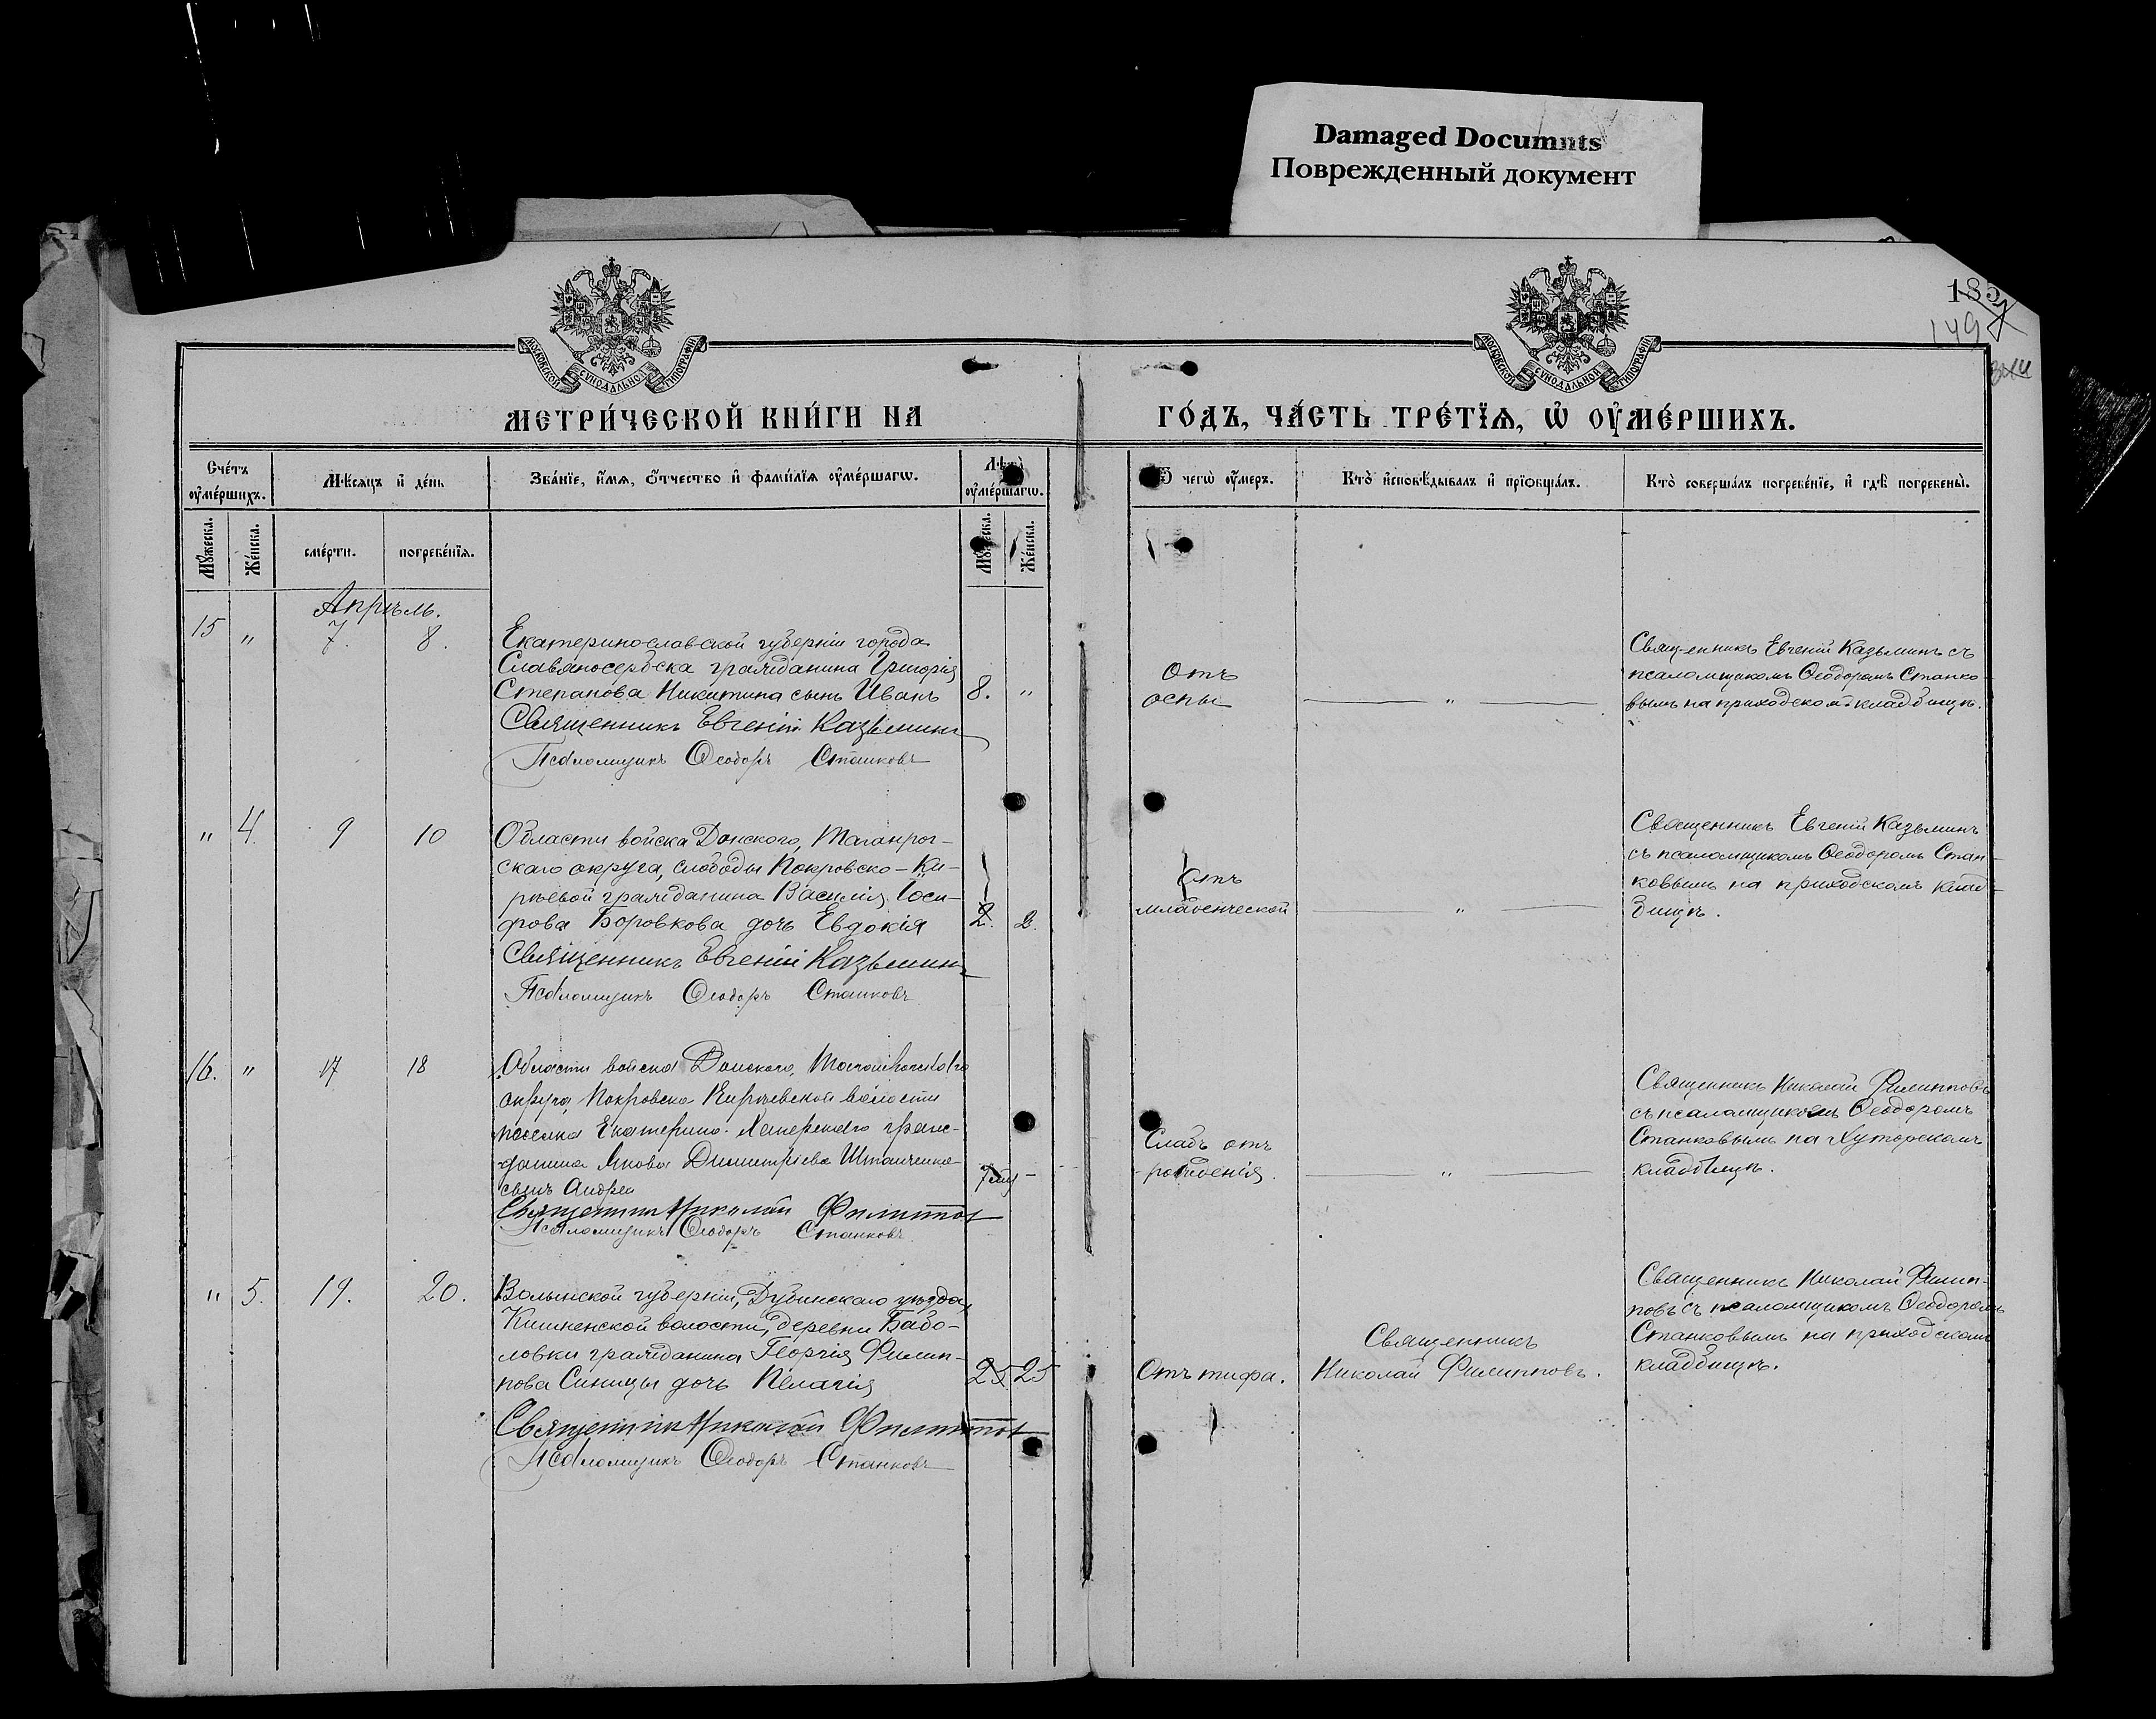 Damaged Documnts
Поврежденный документ
185
149
МОСКОВСКОЙ СѴНОДАЛЬНОЙ ТИПОГРАФІИ
МОСКОВСКОЙ СѴНОДАЛЬНОЙ ТИПОГРАФІИ
МЕТРИ́ЧЕСКОЙ КНИ́ГИ НА
ГО́ДЪ, ЧА́СТЬ ТРЕ́ТЇѦ, Ѡ҆ ОУ҆МЕ́РШИХЪ.
Сче́тъ оу҆ме́ршихъ.
Мѣ́сѧцъ и҆ де́нь
Зва́нїе, и҆́мѧ, ѻ҆́тчество и҆ фами́лїѧ оу҆ме́ршагѡ.
Лѣ́то оу҆ме́ршагѡ.
Ѿ чегѡ̀ оу҆́меръ.
Кто̀ и҆сповѣ́дывалъ и҆ прїѻбща́лъ.
Кто̀ соверша́лъ погребе́нїе, и҆ гдѣ̀ погребены̀.
Мꙋ́жеска.
Же́нска.
сме́рти.
погребе́нїѧ.
Мꙋ́жеска.
Же́нска.
Апрѣль.
15 " 7. 8.
Екатеринославской губерніи города
Славяносербска гражданина Григорія
Степанова Никитина сынъ Иванъ
8. "
Священникъ Евгеній Казьминъ
Псаломщикъ Ѳеодоръ Станковъ
Отъ
оспы
"
Священникъ Евгеній Казьминъ съ
псаломщикомъ Ѳеодоромъ Станко-
вымъ на приходскомъ кладбищѣ.
" 4. 9 10
Области войска Донского, Таганрог-
скаго округа, слободы Покровско-Ки-
рѣевой гражданина Василія Іоси-
фова Боровкова дочь Евдокія
2. 2.
Священникъ Евгеній Казьминъ
Псаломщикъ Ѳеодоръ Станковъ
Отъ
младенческой
"
Священникъ Евгеній Казьминъ
съ псаломщикомъ Ѳеодоромъ Стан-
ковымъ на приходскомъ клад-
бищѣ.
16. " 17 18
Области войска Донского, Таганрогскаго
округа, Покровско Кирѣевской волости
поселка Екатерино-Хаперскаго граж-
данина Якова Димитріева Штанченка
сынъ Андрей
Священник Николай Филиппов
Псаломщикъ Ѳеодоръ Станковъ
Слабъ отъ
рожденія.
"
Священникъ Николай Филипповъ
съ псаломщикомъ Ѳеодоромъ
Станковымъ на Хуторскомъ
кладбищѣ.
" 5. 19. 20.
Волынской губерніи, Дубинскаго уѣзда,
волости, деревни Бабо-
ловки гражданина Георгія Филип-
пова Синицы дочь Пелагія
25 25
Священник Николай Филиппов
Псаломщикъ Ѳеодоръ Станковъ
Отъ тифа.
Священникъ
Николай Филипповъ.
Священникъ Николай Филип-
повъ съ псаломщикомъ Ѳеодоромъ
Станковымъ на приходскомъ
кладбищѣ.